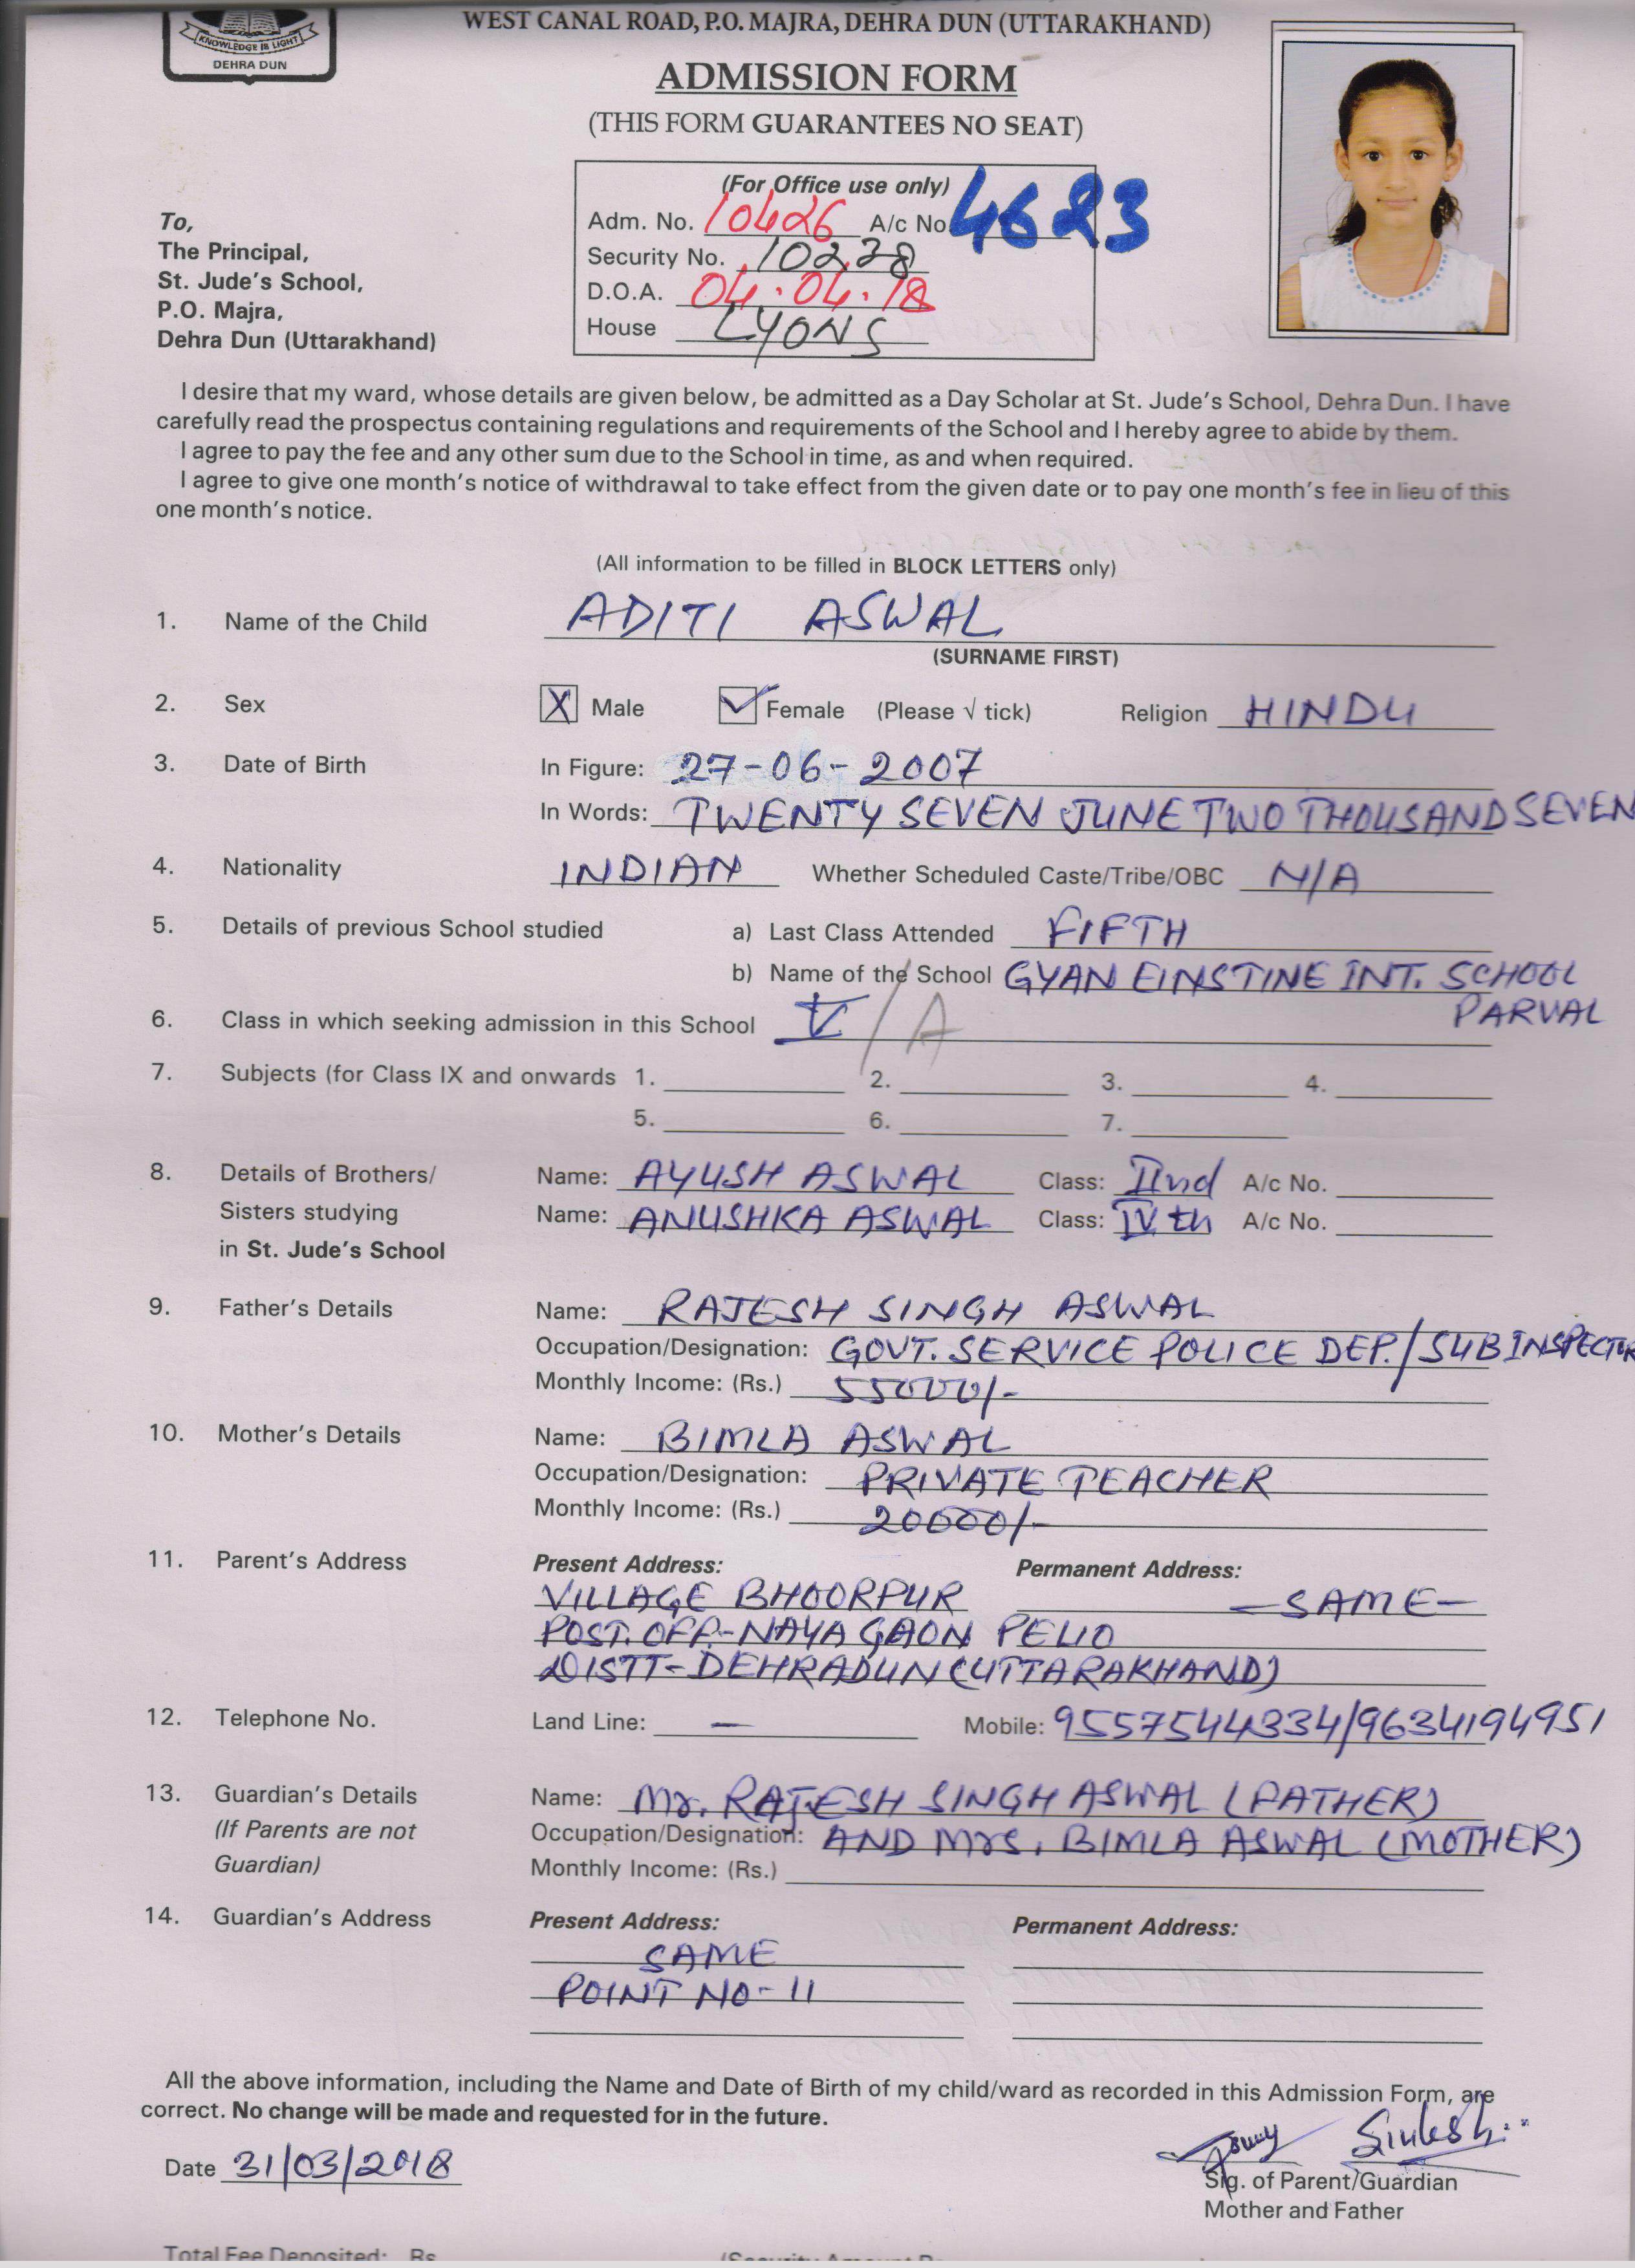 KNOWLEDGE IS LIGHT
DEHRA DUN
WEST CANAL ROAD, P.O. MAJRA, DEHRA DUN (UTTARAKHAND)
ADMISSION FORM
(THIS FORM GUARANTEES NO SEAT)
(For Office use only)
Adm. No. 10426 A/c No 4623
Security No. 10238
D.O.A. 04.04.18
House LYONS
To,
The Principal,
St. Jude's School,
P.O. Majra,
Dehra Dun (Uttarakhand)
I desire that my ward, whose details are given below, be admitted as a Day Scholar at St. Jude's School, Dehra Dun. I have
carefully read the prospectus containing regulations and requirements of the School and I hereby agree to abide by them.
I agree to pay the fee and any other sum due to the School in time, as and when required.
I agree to give one month's notice of withdrawal to take effect from the given date or to pay one month's fee in lieu of this
one month's notice.
(All information to be filled in BLOCK LETTERS only)
1. Name of the Child ADITI ASWAL
(SURNAME FIRST)
2. Sex X Male ✓ Female (Please √ tick) Religion HINDU
3. Date of Birth In Figure: 27-06-2007
In Words: TWENTY SEVEN JUNE TWO THOUSAND SEVEN
4. Nationality INDIAN Whether Scheduled Caste/Tribe/OBC N/A
5. Details of previous School studied a) Last Class Attended FIFTH
b) Name of the School GYAN EINSTINE INT. SCHOOL
PARVAL
6. Class in which seeking admission in this School V/A
7. Subjects (for Class IX and onwards 1. 2. 3. 4.
5. 6. 7.
8. Details of Brothers/ Name: AYUSH ASWAL Class: IInd A/c No.
Sisters studying Name: ANUSHKA ASWAL Class: IVth A/c No.
in St. Jude's School
9. Father's Details Name: RAJESH SINGH ASWAL
Occupation/Designation: GOVT. SERVICE POLICE DEP./SUB INSPECTOR
Monthly Income: (Rs.) 55000/-
10. Mother's Details Name: BIMLA ASWAL
Occupation/Designation: PRIVATE TEACHER
Monthly Income: (Rs.) 20000/-
11. Parent's Address Present Address: Permanent Address:
VILLAGE BHOORPUR -SAME-
POST. OFF.-NAYA GAON PELIO
DISTT-DEHRADUN (UTTARAKHAND)
12. Telephone No. Land Line: — Mobile: 9557544334/9634194951
13. Guardian's Details Name: Mr. RAJESH SINGH ASWAL (FATHER)
(If Parents are not Occupation/Designation: AND Mrs. BIMLA ASWAL (MOTHER)
Guardian) Monthly Income: (Rs.)
14. Guardian's Address Present Address: Permanent Address:
SAME
POINT NO-11
All the above information, including the Name and Date of Birth of my child/ward as recorded in this Admission Form, are
correct. No change will be made and requested for in the future.
Date 31/03/2018
Sig. of Parent/Guardian
Mother and Father
Total Fee Deposited: Rs.